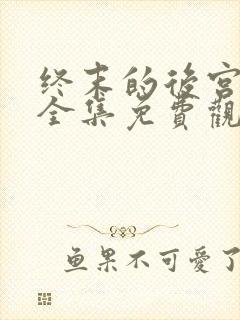 终末的後宫
全集免費觀
鱼果不可愛了